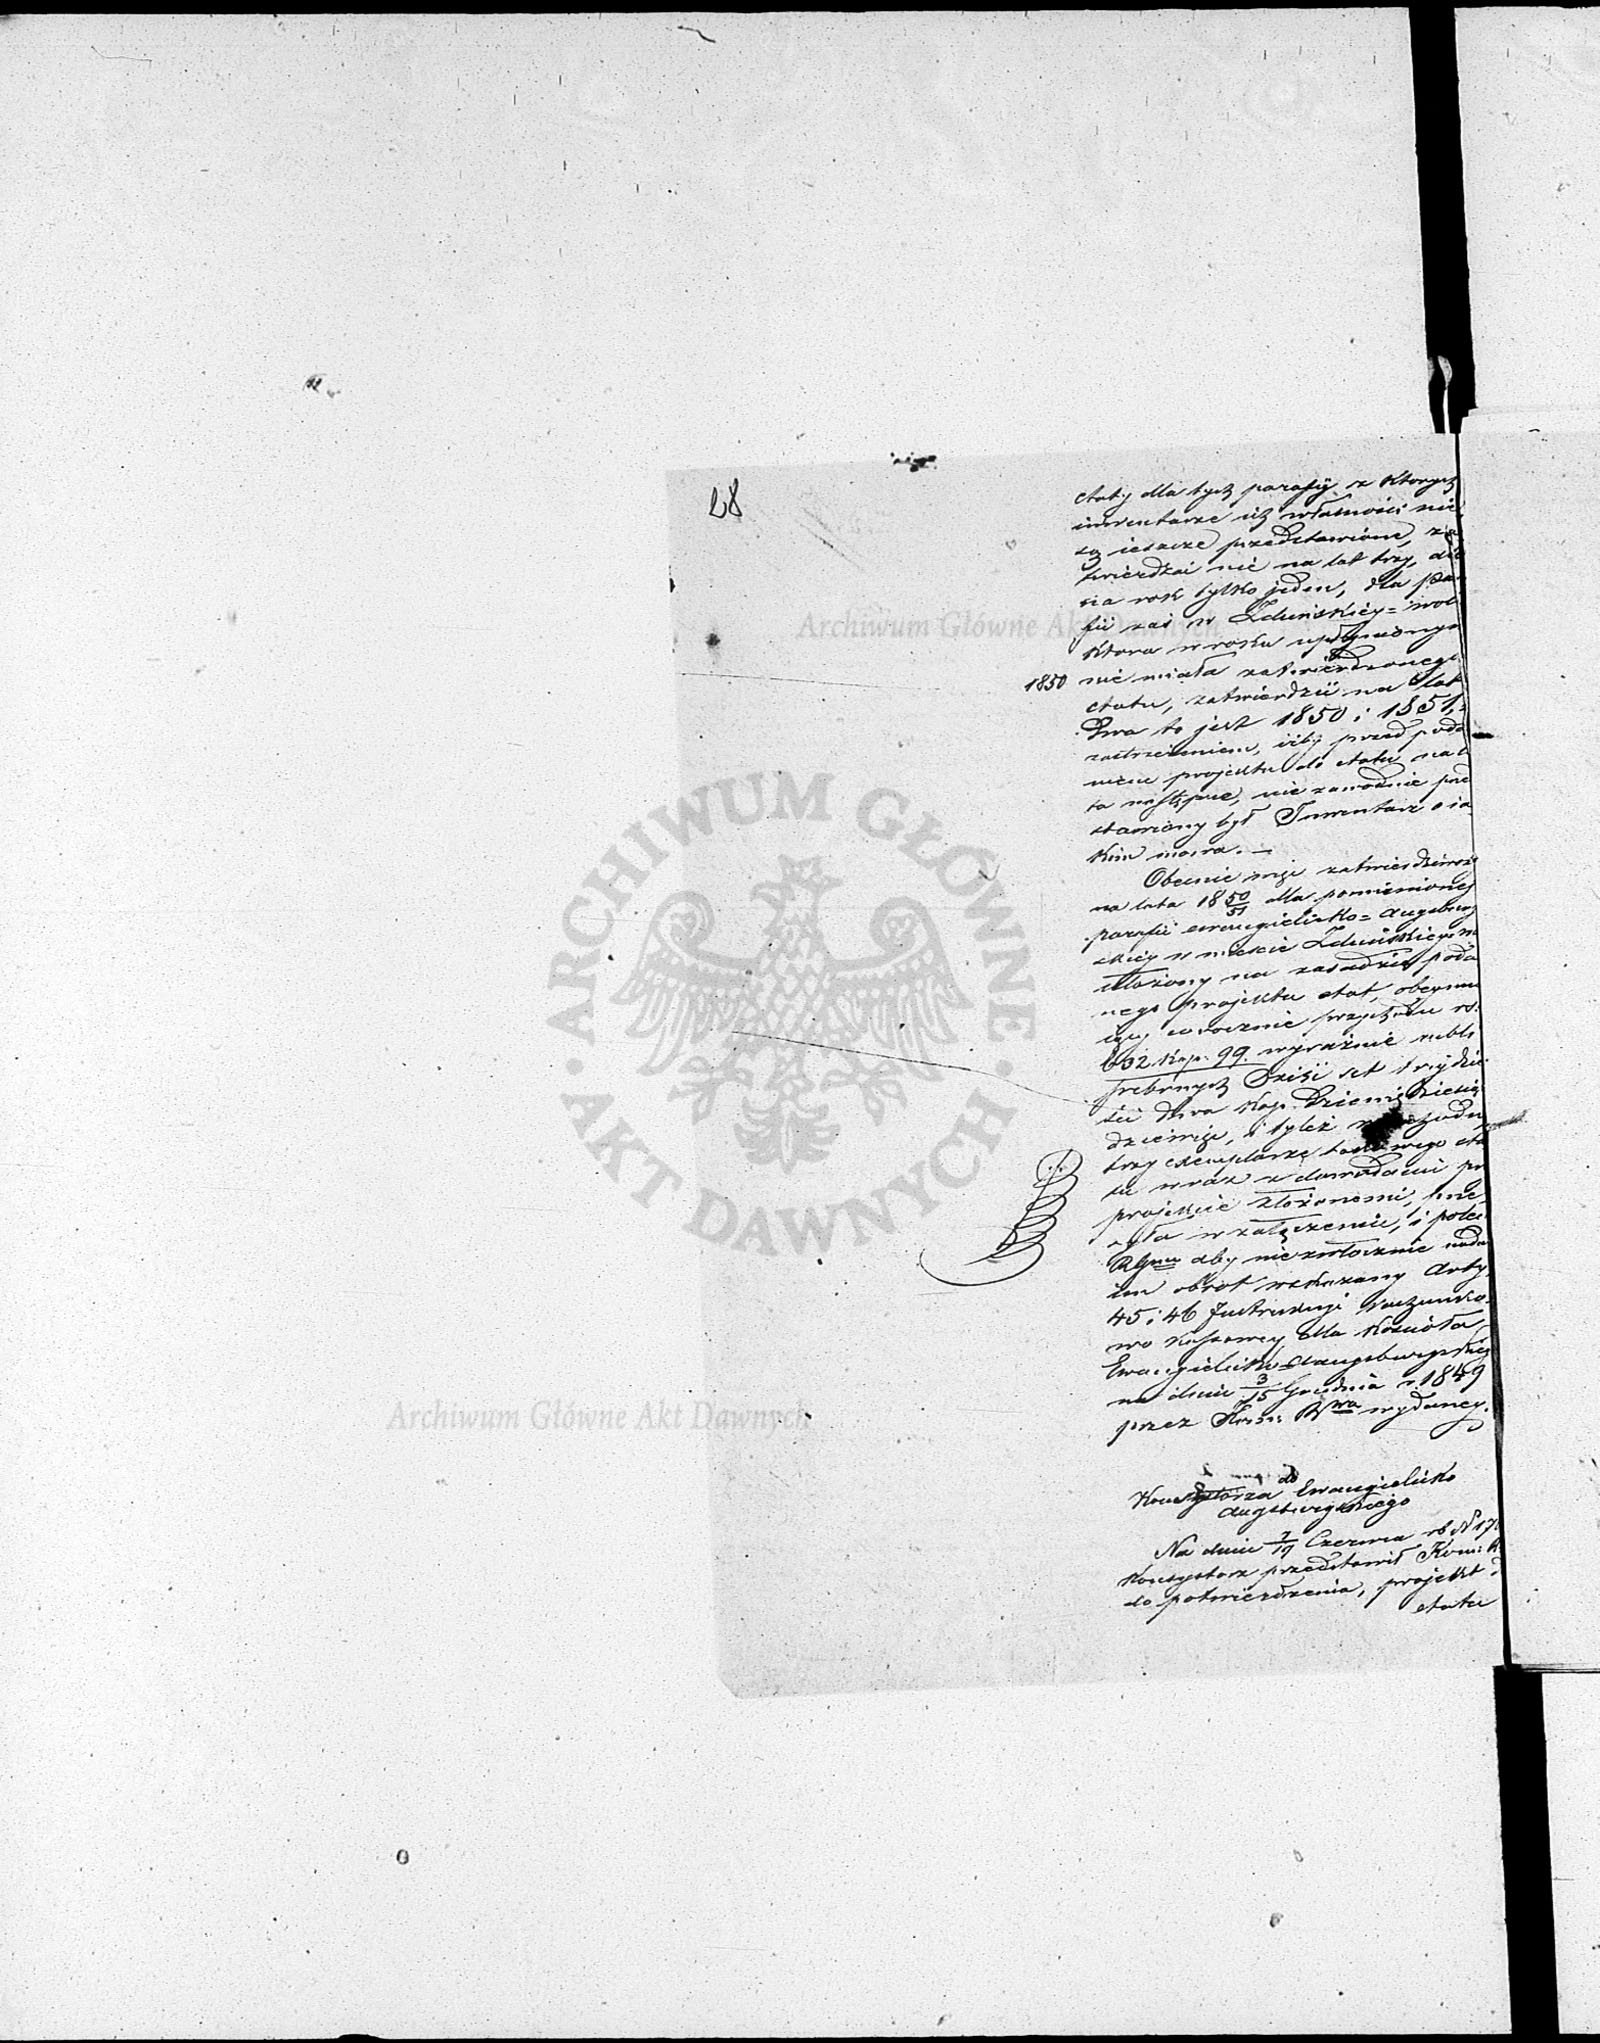 28
etaty dla tych parafij z których
inwentarze ich własności nie
są ieszcze przedstawione, za
twierdzać nie na lat trzy, ale
na rok tylko jeden, dla para
fii zaś w Zduńskiéy=woli
która w roku upłynionym
1850 nie miała zatwierdzonego
etatu, zatwierdzić na lat
dwa to jest 1850 i 1851, z
zastrzeżeniem, iżby przed poda
niem projektu do etatu na l
ta następne, niezawodnie przed
stawiony był Inwentarz o ia
kim mowa. —
Obecnie więc zatwierdziwszy
na lata 18 50/51 dla pomienionéy
parafii ewangielicko=Augsburg
skiéy w mieście Zduńskiéy w
ułożony na zasadzie poda
nego projektu etat, obeymu
iący w rocznie przychodu rs.
632 kop: 99. wyraźnie rubli
srebrnych sześć set trzydzie
ści dwa kop. dziewięćdziesiąt
dziewięć, i tyleż rozchodu,
trzy exemplarze takowego eta
tu wraz z dowodami przy
projekcie złożonemi, prze
syła w załączeniu, i poleca
aby niezwłocznie nadał
im obrót wskazany Arty.
45 i 46 Instrukcyi Rachunko
wo Kassowey dla Kościoła
Ewangielicko=Augsburgskiey
na dniu 3/15 Grudnia r. 1849
przez Kom: Rwa wydaney.
do
Konsystorza Ewangielicko
Augsburgskiego
Na dniu 7/19 Czerwca rb N 17
Konsystorz przedstawił Kom: R
do potwierdzenia, projekt d
etatu
ARCHIWUM GŁÓWNE
AKT DAWNYCH
Archiwum Główne Akt Dawnych
Archiwum Główne Akt Dawnych